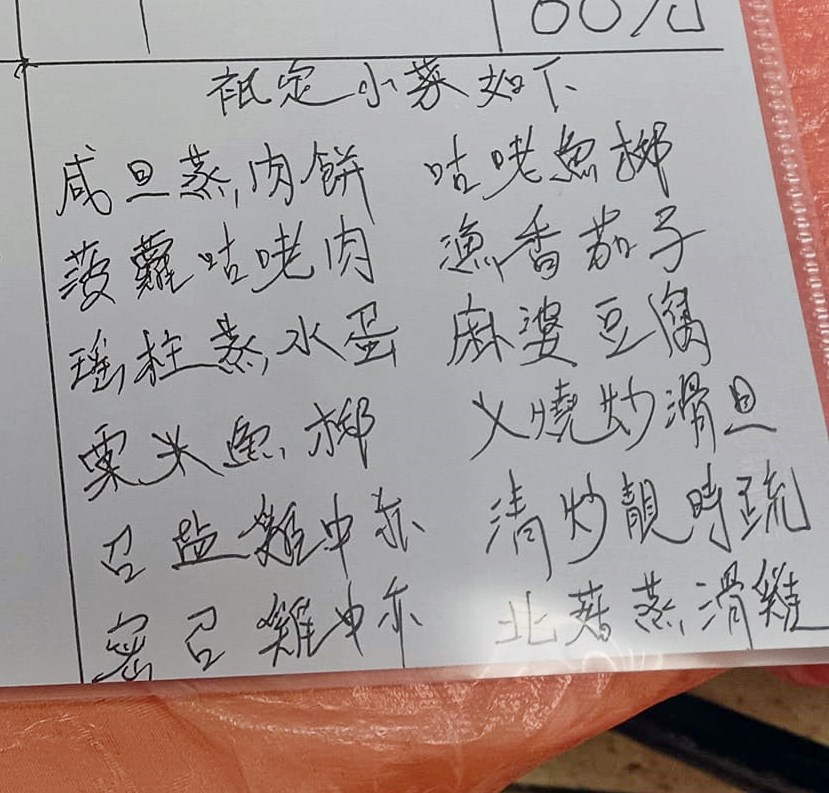 60元
祗定小菜如下
咸旦蒸肉餅 咕咾魚柳
菠蘿咕咾肉 漁香茄子
瑤柱蒸水蛋 麻婆豆腐
粟米魚柳 乂燒炒滑旦
召盐雞中亦 清炒靚時疏
密召雞中亦 北菇蒸滑雞